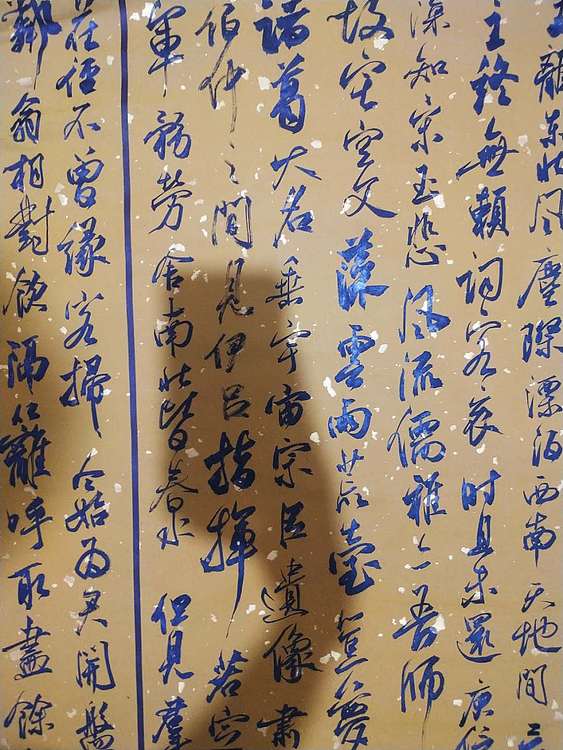 離東北風塵際漂泊西南天地間三
主終無賴詞客哀時且未還庾信
深知宋玉悲風流儒雅亦吾師
故宅空文藻雲雨荒臺豈夢
諸葛大名垂宇宙宗臣遺像肅
伯仲之間見伊呂指揮若定
軍務勞 舍南北皆春水 但見羣
花徑不曾緣客掃今始為君開盤
鄰翁相對飲隔籬呼取盡餘